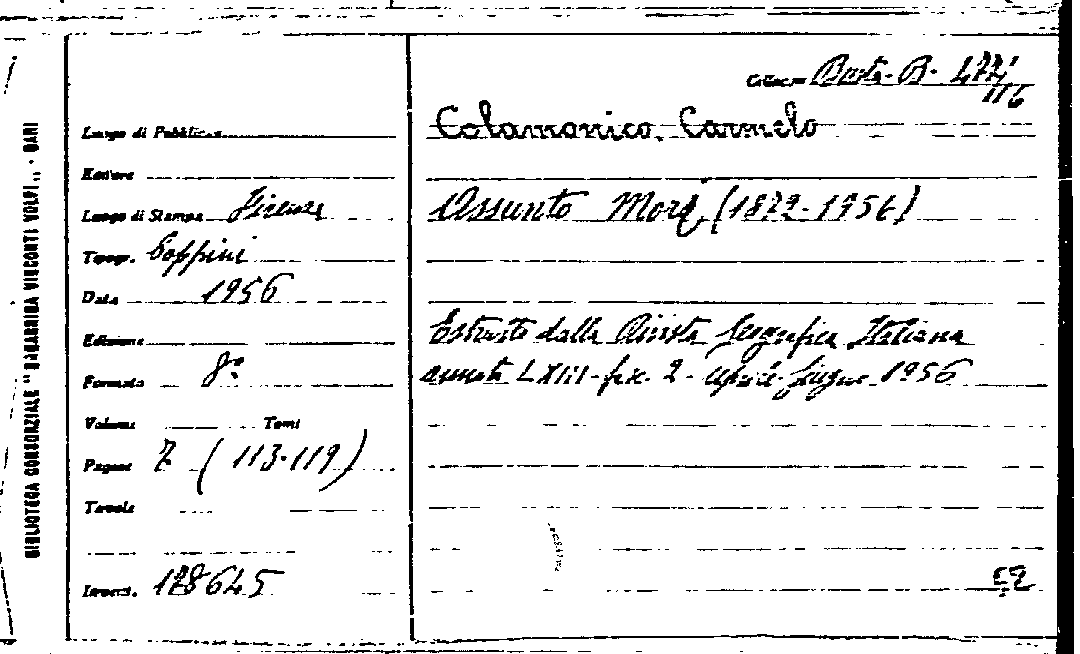 BIBLIOTECA CONSORZIALE "SAGARRIGA VISCONTI VOLPI,, - BARI
Colloc. Busta-B. 177/
116
Luogo di Pubblicaz.
Colamonico, Carmelo
Editore
Luogo di Stampa Firenze
Assunto Mori, (1872-1956)
Tipogr. Coppini
Data 1956
Edizione
Estratto dalla Rivista Geografica Italiana
Formato 8°
annata LXIII-fasc. 2 - Aprile-Giugno 1956
Volume Tomi
Pagine 7 (113-119)
Tavole
Invent. 178645